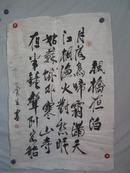 楓橋夜泊
月落烏啼霜滿天
江楓漁火對愁眠
姑蘇城外寒山寺
夜半鐘聲到客船